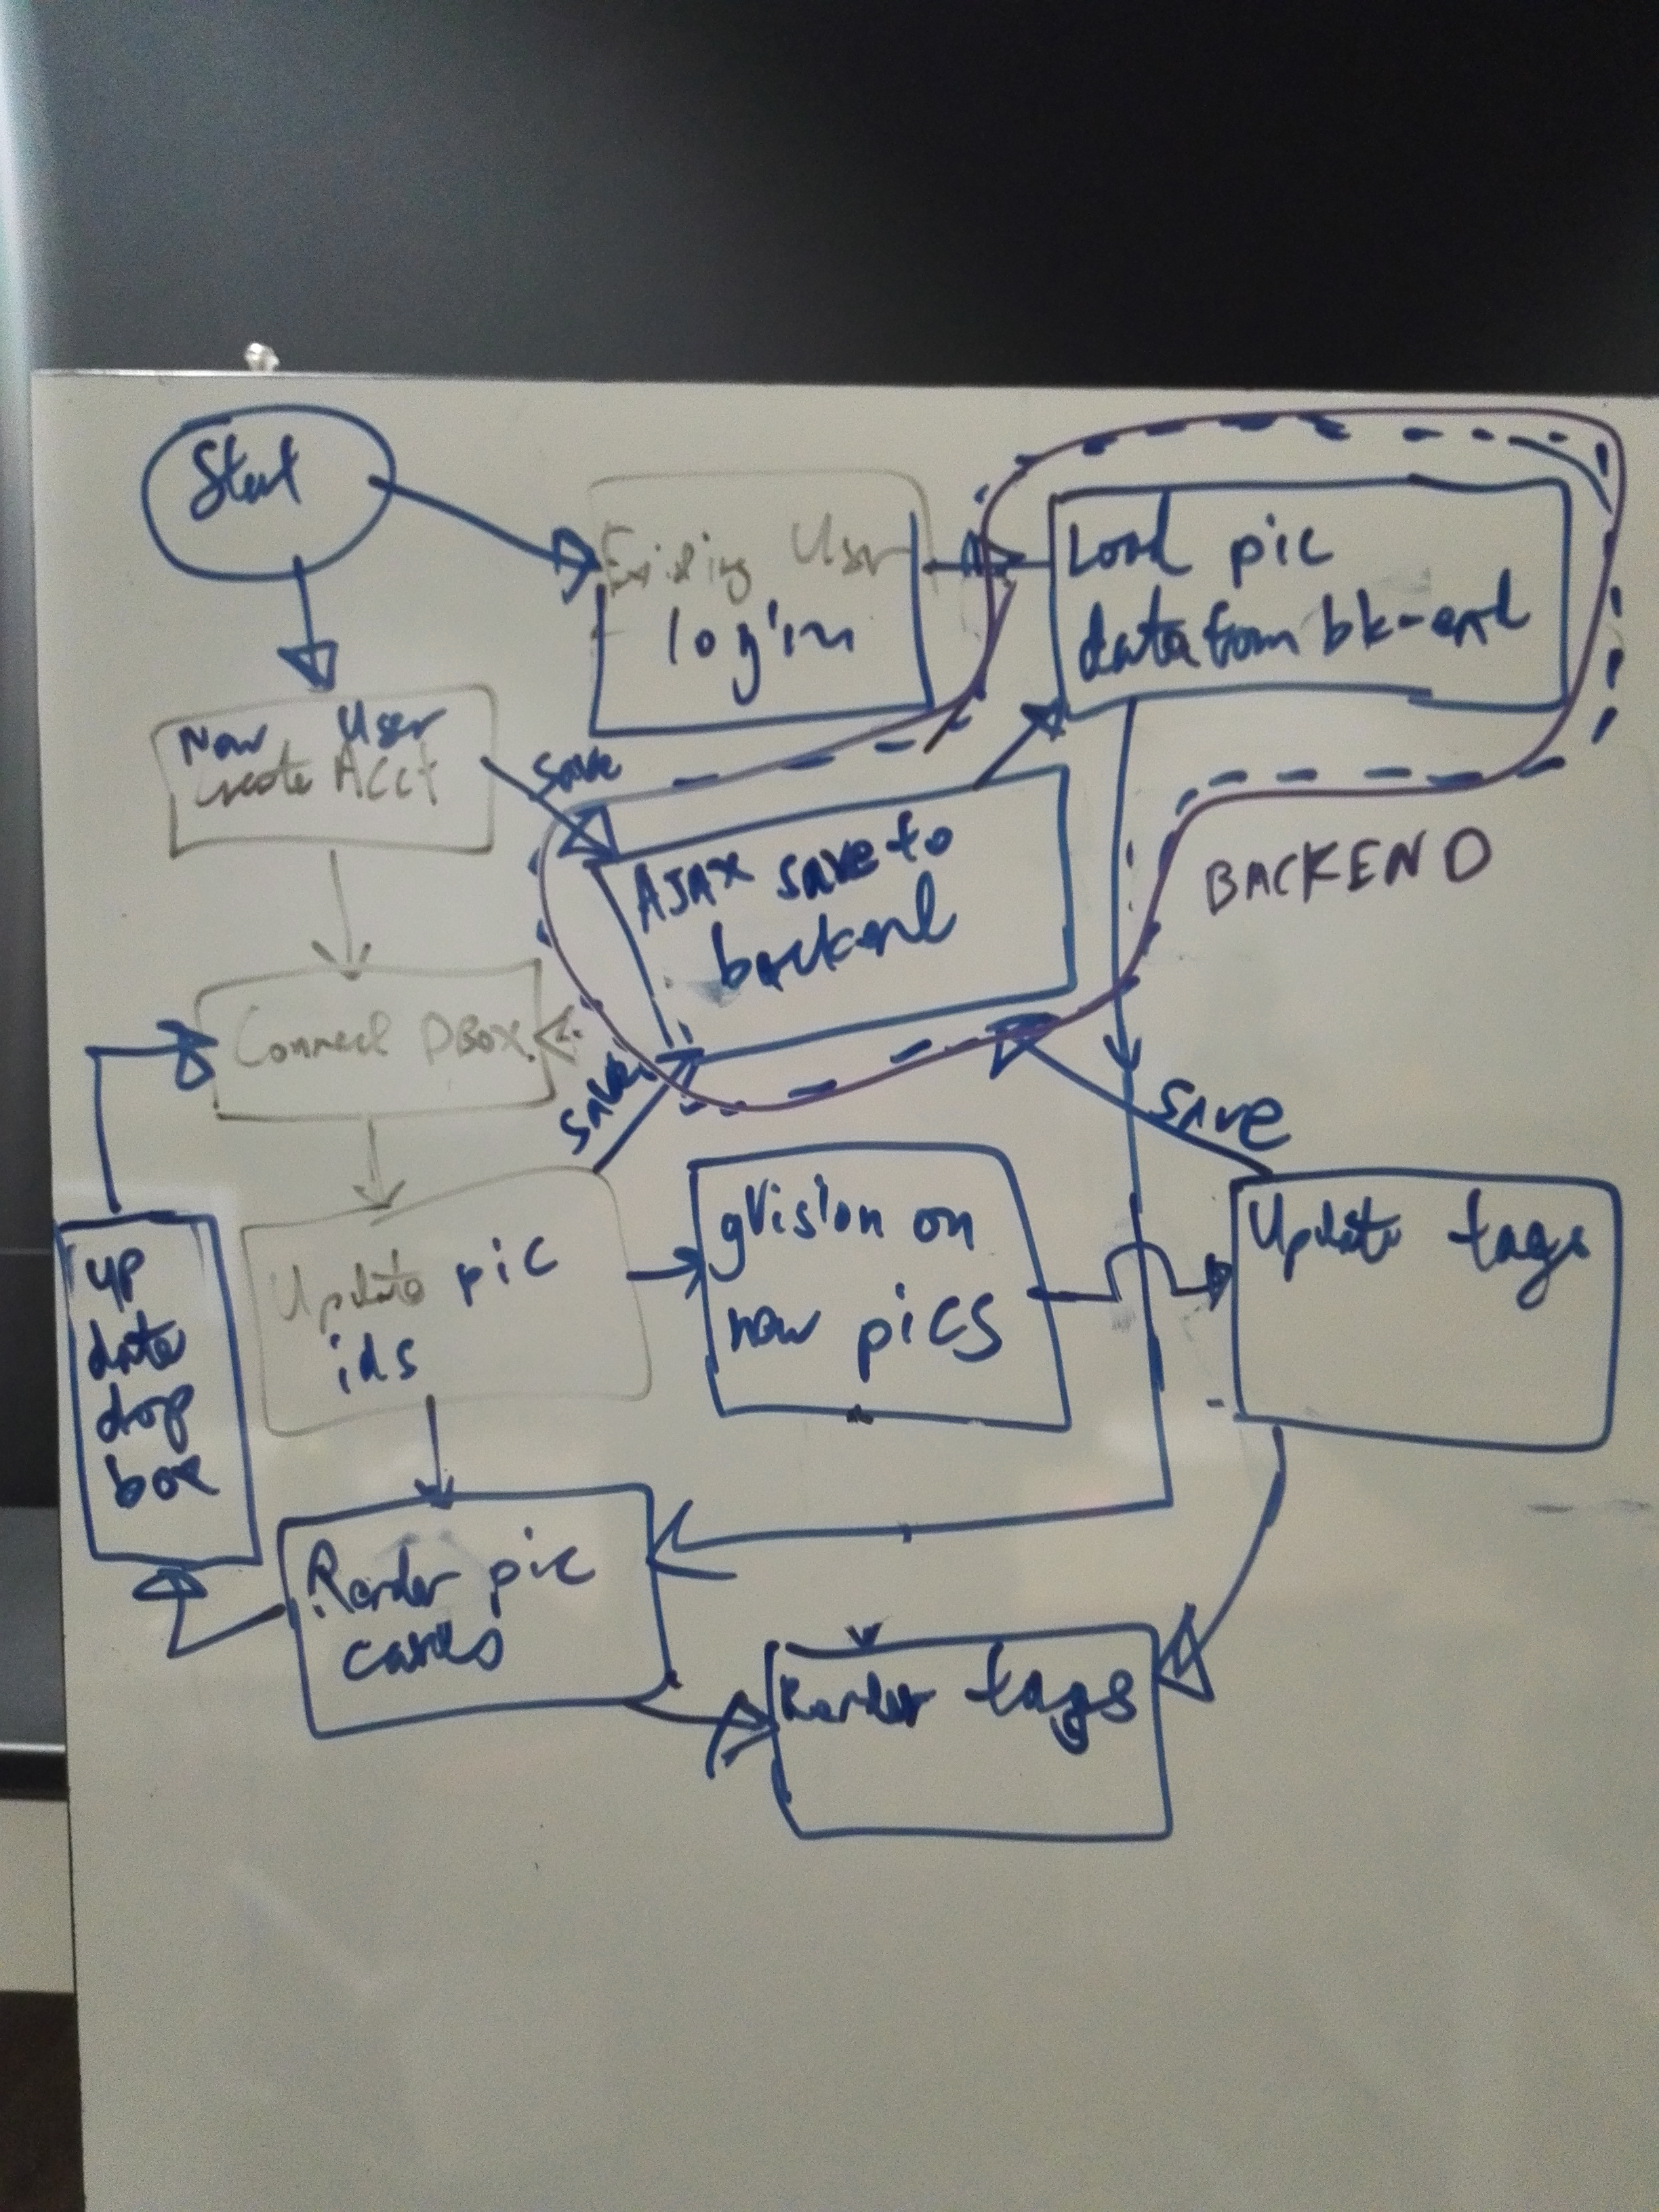 Start
Existing User
login
Load pic
data from bk-end
New User
create Acct
save
AJAX save to
backend
BACKEND
Connect DBOX
save
save
up
date
drop
box
Update pic
ids
gVision on
new pics
Update tags
Render pic
cards
Render tags